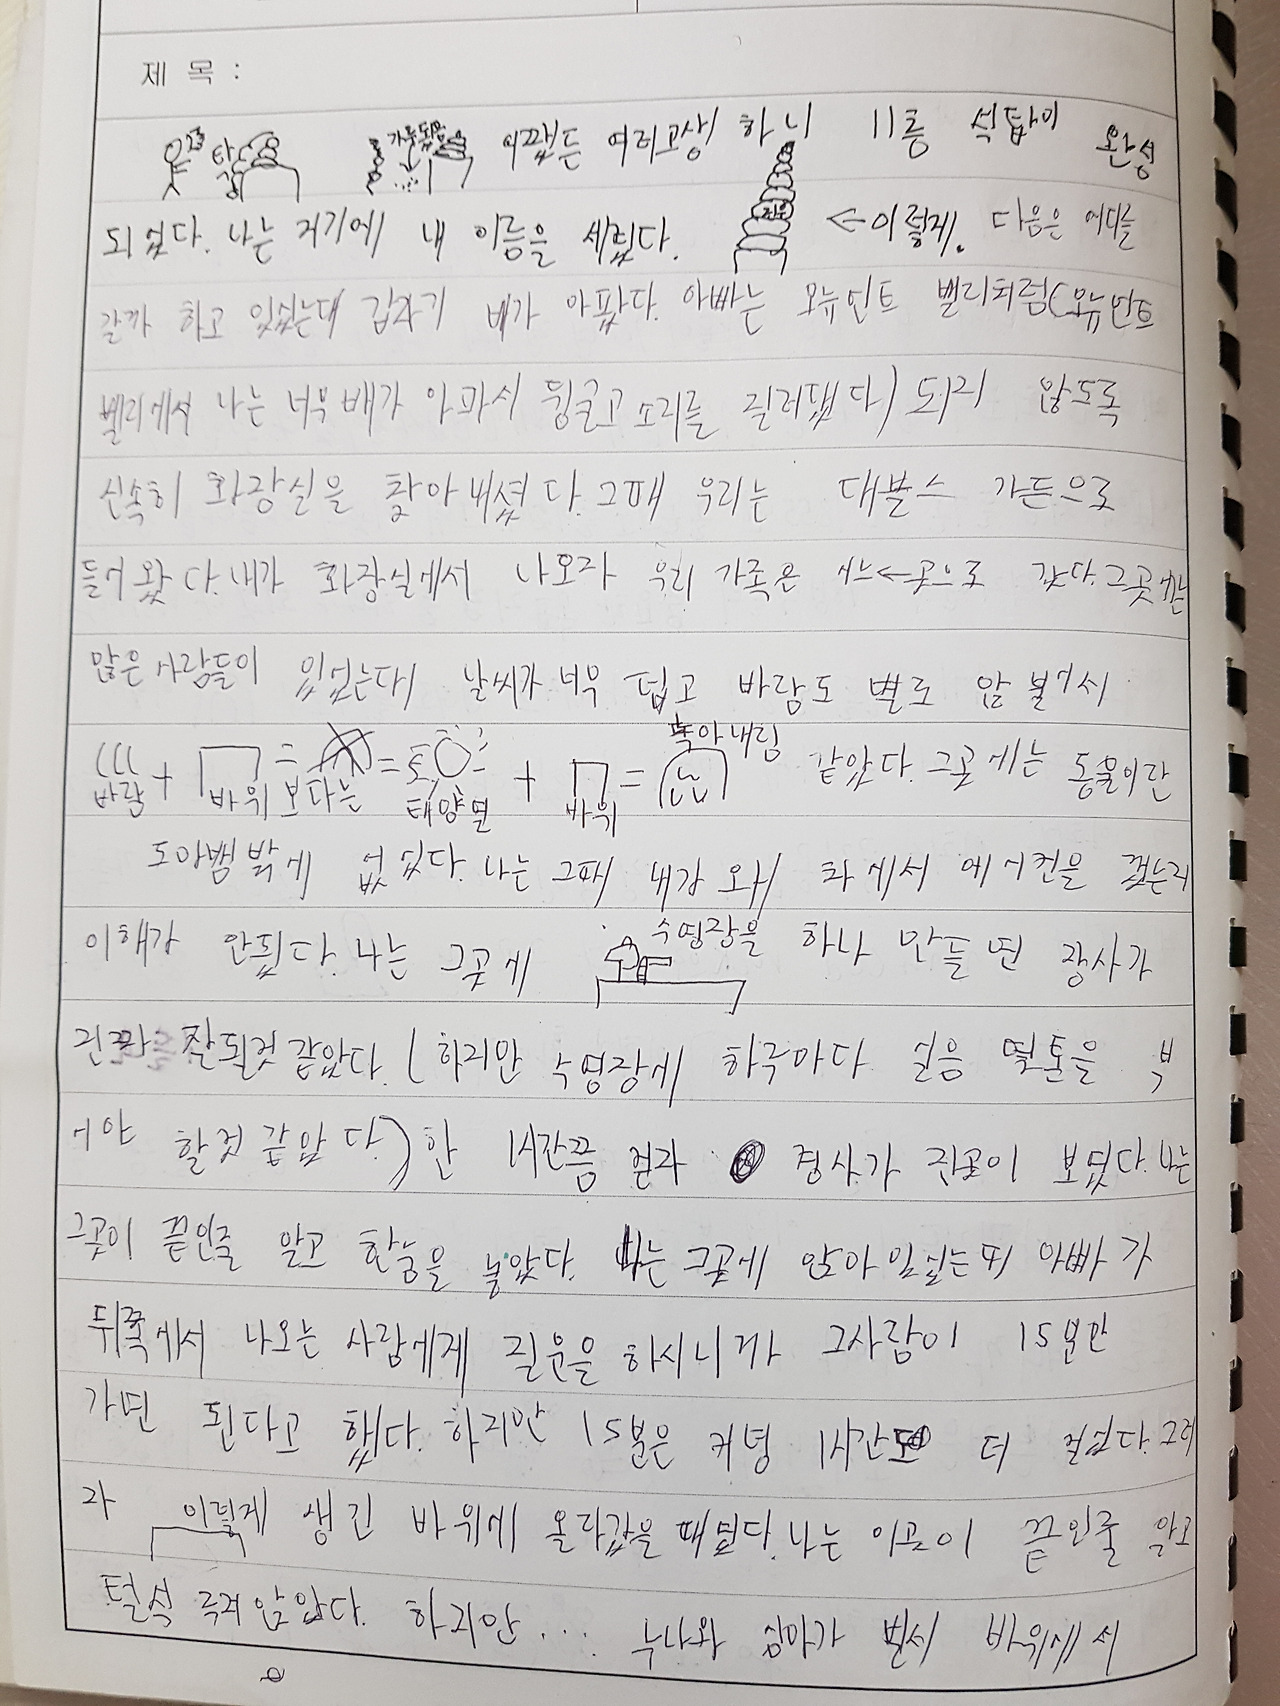 제 목 :
탁 가루됬음 어쨌든 여러고생 하니 11층 석탑이 완성
되었다. 나는 거기에 내 이름을 새겼다. ←이렇게. 다음은 어디를
갈까 하고 있었는대 갑자기 배가 아팠다. 아빠는 모뉴먼트 밸리처럼(모뉴먼트
밸리에서 나는 너무 배가 아파서 뒹굴고 소리를 질러댔다) 되지 않도록
신속히 화장실을 찾아내셨다. 그때 우리는 대블스 가든으로
들어왔다. 내가 화장실에서 나오자 우리 가족은 ← 곳으로 갔다. 그곳에는
많은 사람들이 있었는대 날씨가 너무 덥고 바람도 별로 안 불어서
바람 + 바위 = 보다는 = 태양열 + 바위 = 녹아내림 같았다. 그곳에는 동물이란
도마뱀 밖에 없었다. 나는 그때 내가 왜 차에서 에어컨을 껐는지
이해가 안됬다. 나는 그곳에 수영장을 하나 만들면 장사가
진짜 잘될것 같았다. (하지만 수영장에 하루마다 얼음 몇톤을 부
어야 할것 같았다.) 한 1시간쯤 걷자 경사가 진곳이 보였다. 나는
그곳이 끝인줄 알고 한숨을 놓았다. 나는 그곳에 앉아있었는데 아빠가
뒤쪽에서 나오는 사람에게 질문을 하시니까 그사람이 15분만
가면 된다고 했다. 하지만 15분은 커녕 1시간도 더 걸었다. 그러
자 이렇게 생긴 바위에 올라갔을 때였다. 나는 이곳이 끝인줄 알고
털석 주저앉았다. 하지만... 누나와 엄마가 벌써 바위에서